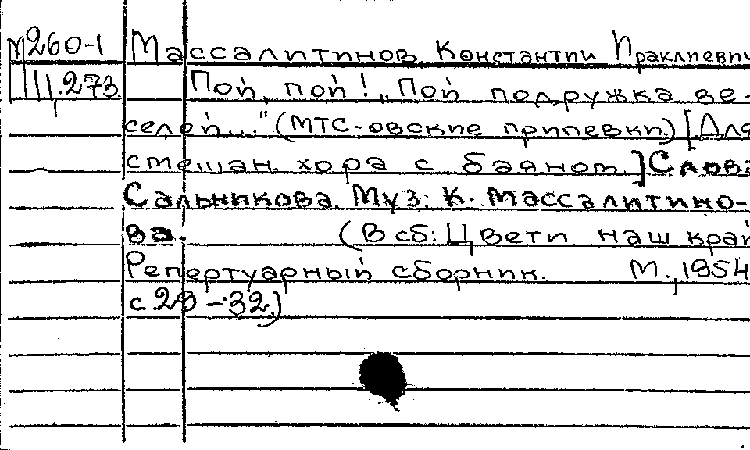 М260-1 Массалитинов, Константин Ираклиевич
III.273 Пой, пой! „Пой подружка ве-
селей..." (МТС-овские припевки.) [Для
смешан. хора с баяном.] Слова
Сальникова. Муз. К. Массалитино-
ва. (В сб: Цвети наш край
Репертуарный сборник. М., 1954
с. 28-32.)